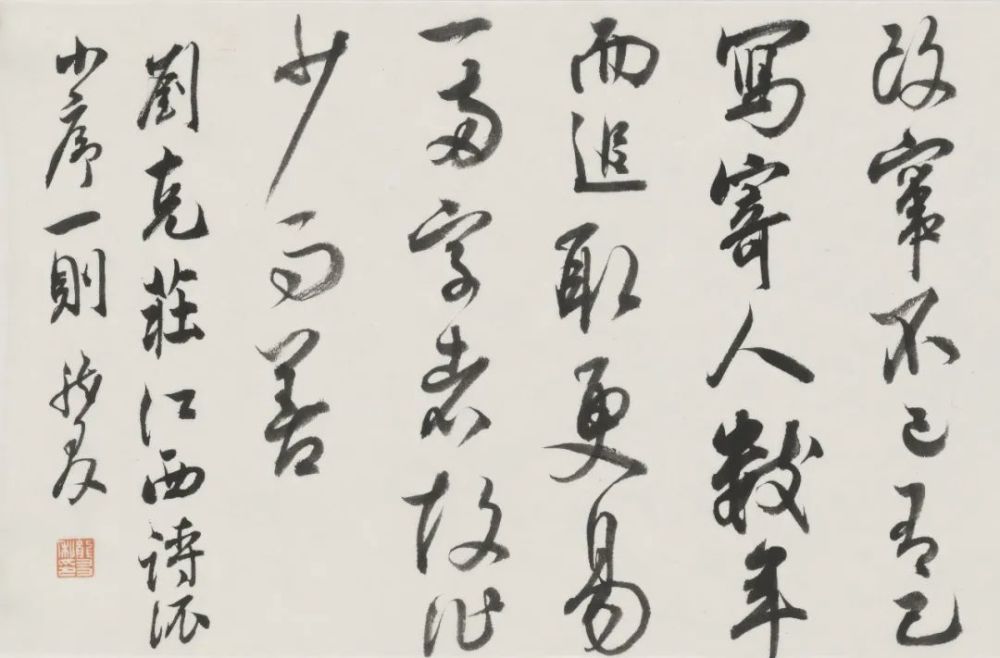 改竄不已有已
寫寄人數年
而追取更易
一兩字者故作
少而善
劉克莊江西詩派
小序一則